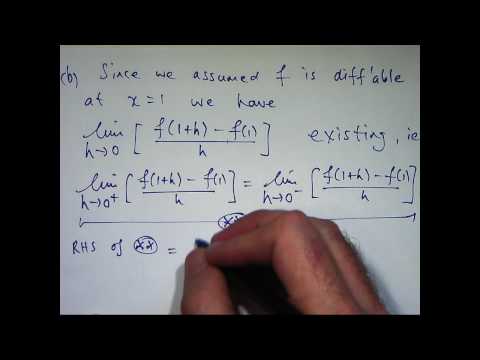 (b) Since we assumed f is diff'able
at x=1 we have
lim h→0 [ f(1+h) - f(1) / h ] existing, ie
lim h→0⁺ [ f(1+h) - f(1) / h ] = lim h→0⁻ [ f(1+h) - f(1) / h ]
**
RHS of ** =